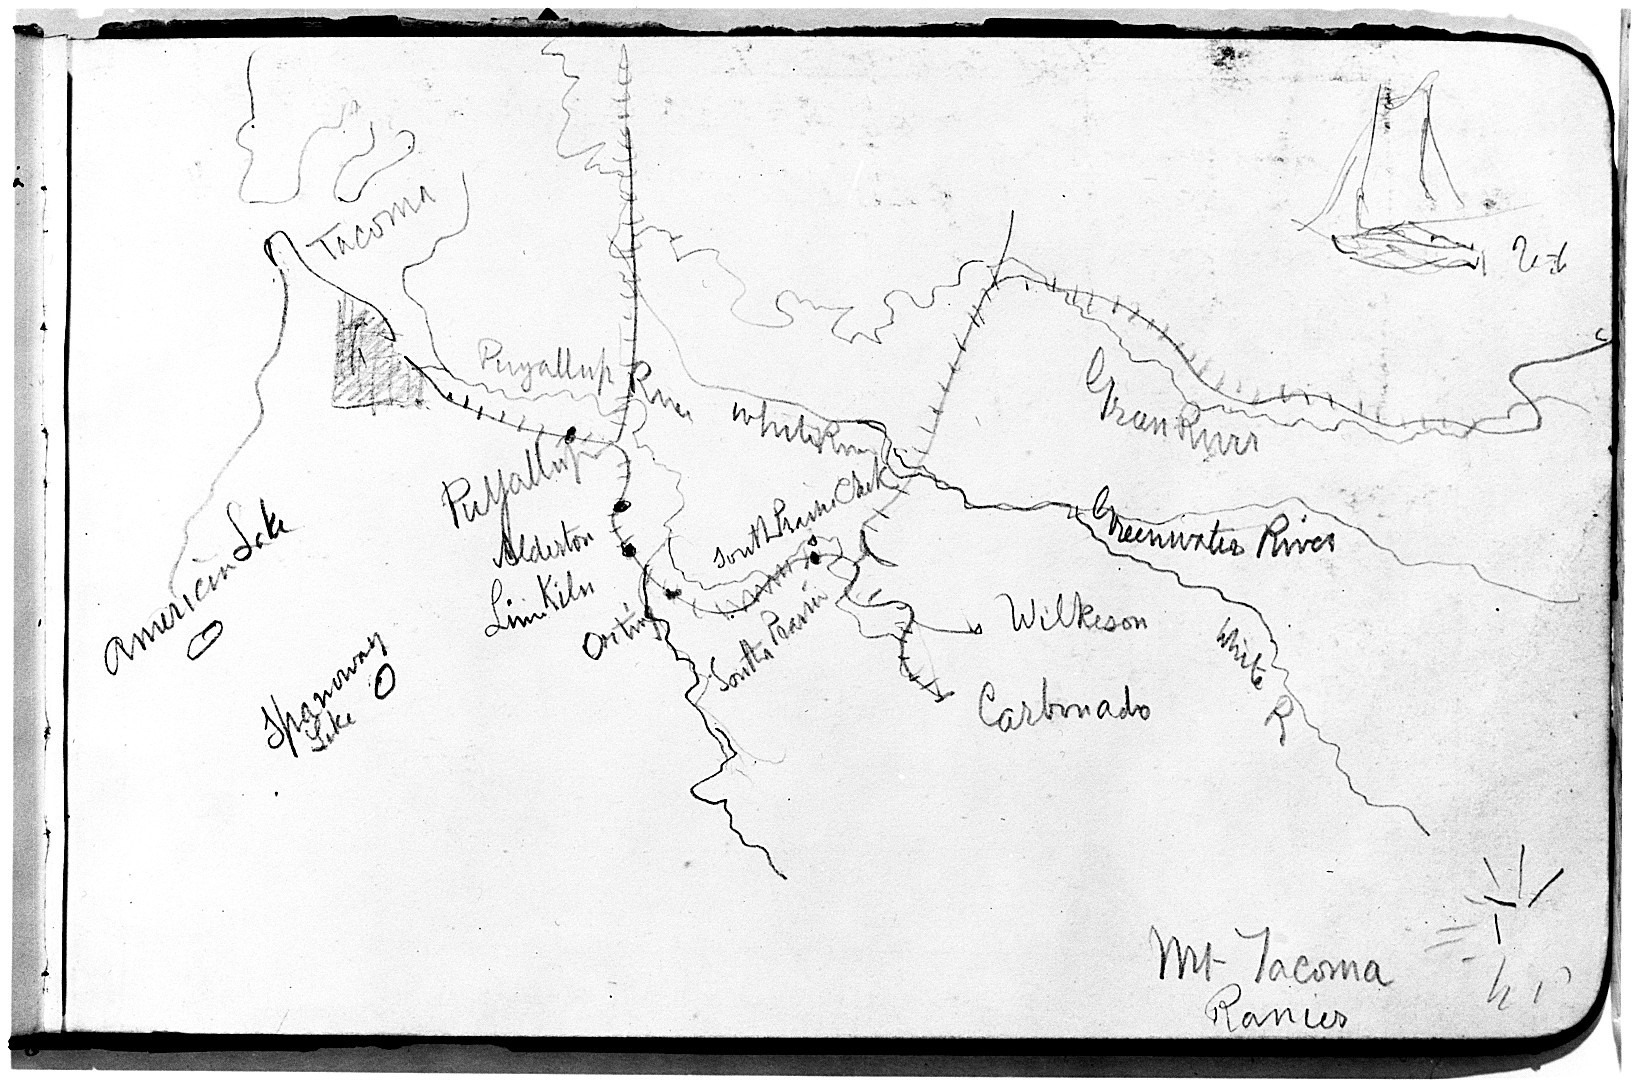 Tacoma
Puyallup River
White River
Green River
Puyallup
South Prairie Creek
Greenwater River
American Lake
Alderton
Lime Kiln
Orting
South Prairie
Wilkeson
White R
Spanaway
Lake
Carbonado
Mt Tacoma
Ranier